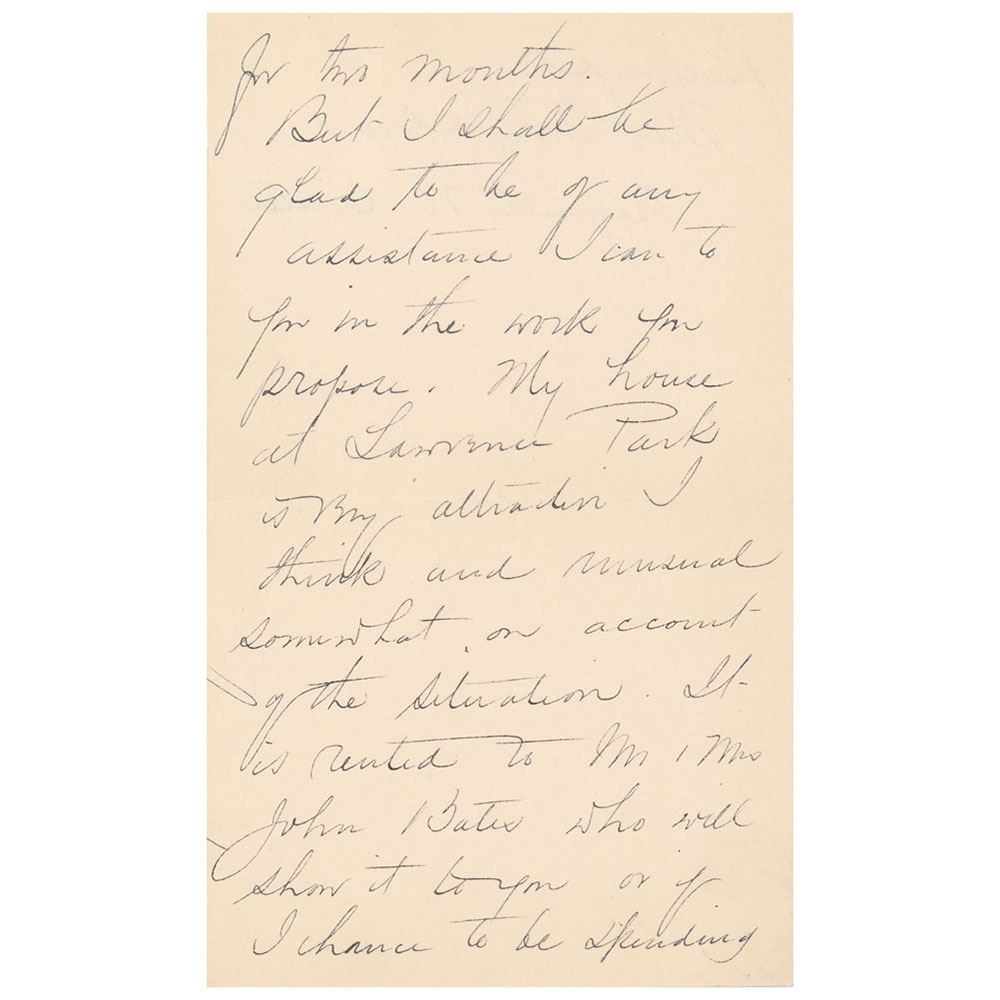 for two months.
But I shall be
glad to be of any
assistance I can to
you in the work you
propose. My house
at Lawrence Park
is my attraction I
think and unusual
somewhat, on account
of the situation. It
is rented to Mr & Mrs
John Bates who will
show it to you or if
I chance to be spending